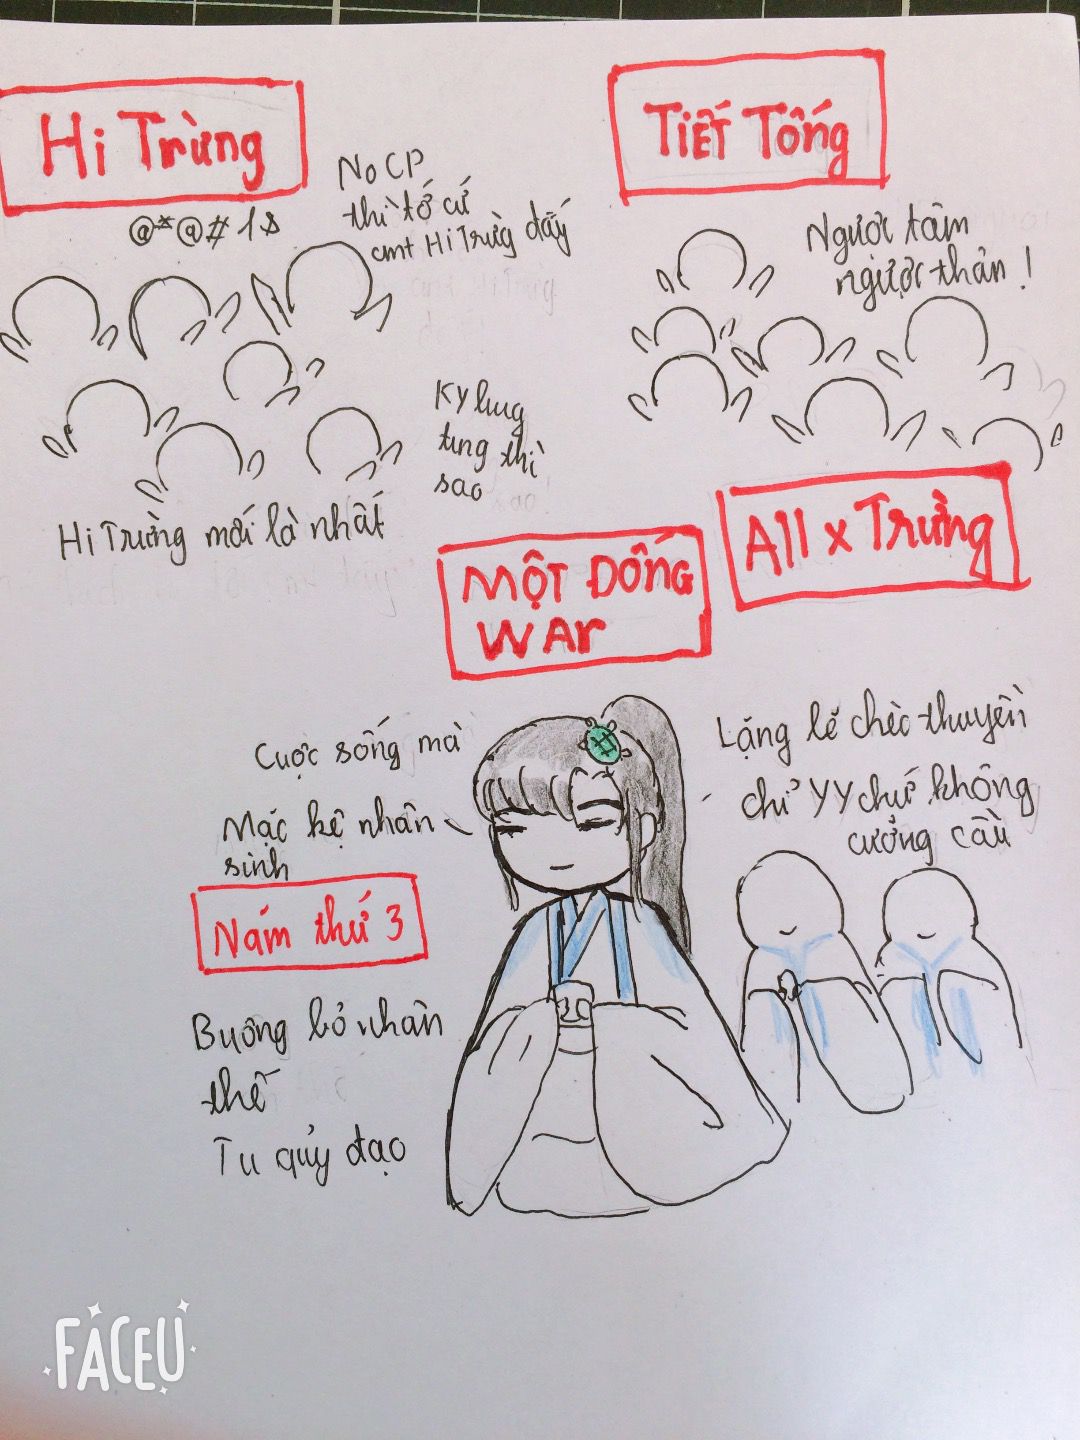 Hi Trừng
Tiết Tống
@*@#1$
No CP
thì tớ cứ
cmt Hi Trừg đấy
Ngược tâm
ngược thân !
tung thì
sao
Hi Trừng mới là nhất
All x Trừng
MỘT ĐỐNG
WAr
Cuộc sống mà
Mặc kệ nhân
sinh
Lặng lẽ chèo thuyền
chỉ YY chứ không
cưỡng cầu
Năm thứ 3
Buông bỏ nhân
thế
Tu quỷ đạo
FACEU